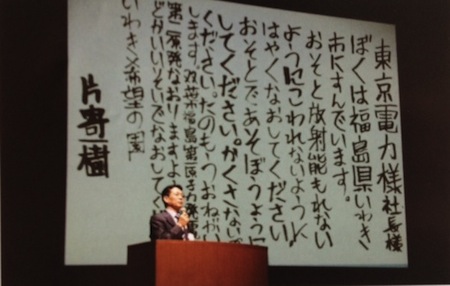 東京電力様 社長様
ぼくは福島県いわき
市にすんでいます。
おそと放射能もれない
ようにこわれないように
はやくなおしてください
おそとであそぼうように
してくださいかくさない
ください。たのもうおねがい
します。双葉福島第一原子力発電
第二原発なおりますよ
どかいいそいでなおしてく
いわき 希望の園
片寄一樹